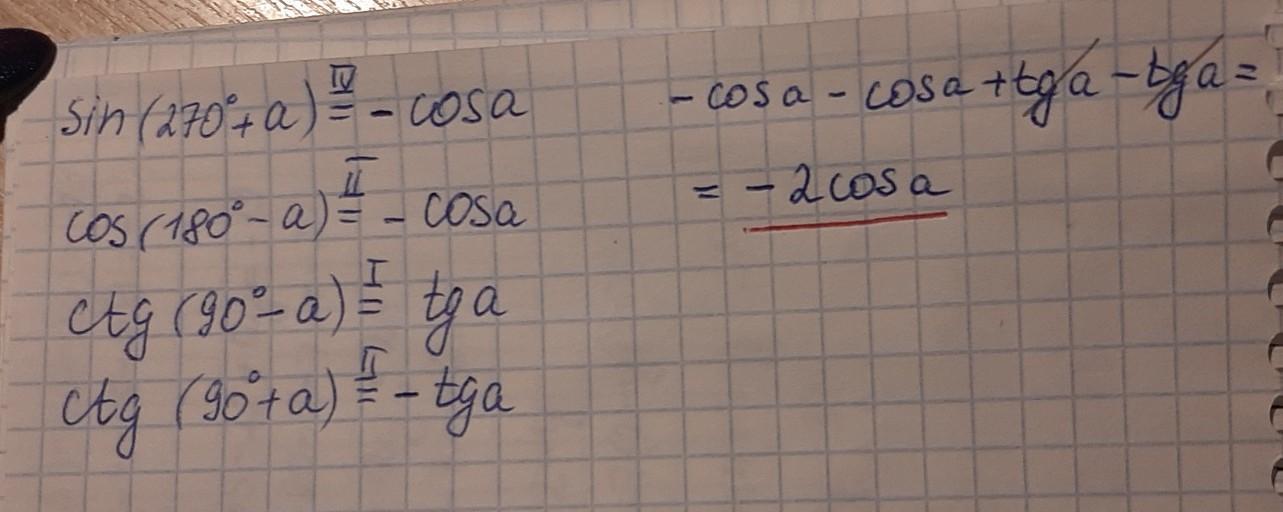 sin(270°+a) IV= -cosa
cos(180°-a) II= -cosa
ctg(90°-a) I= tga
ctg(90°+a) II= -tga
-cosa-cosa+tga-tga=
= -2cosa